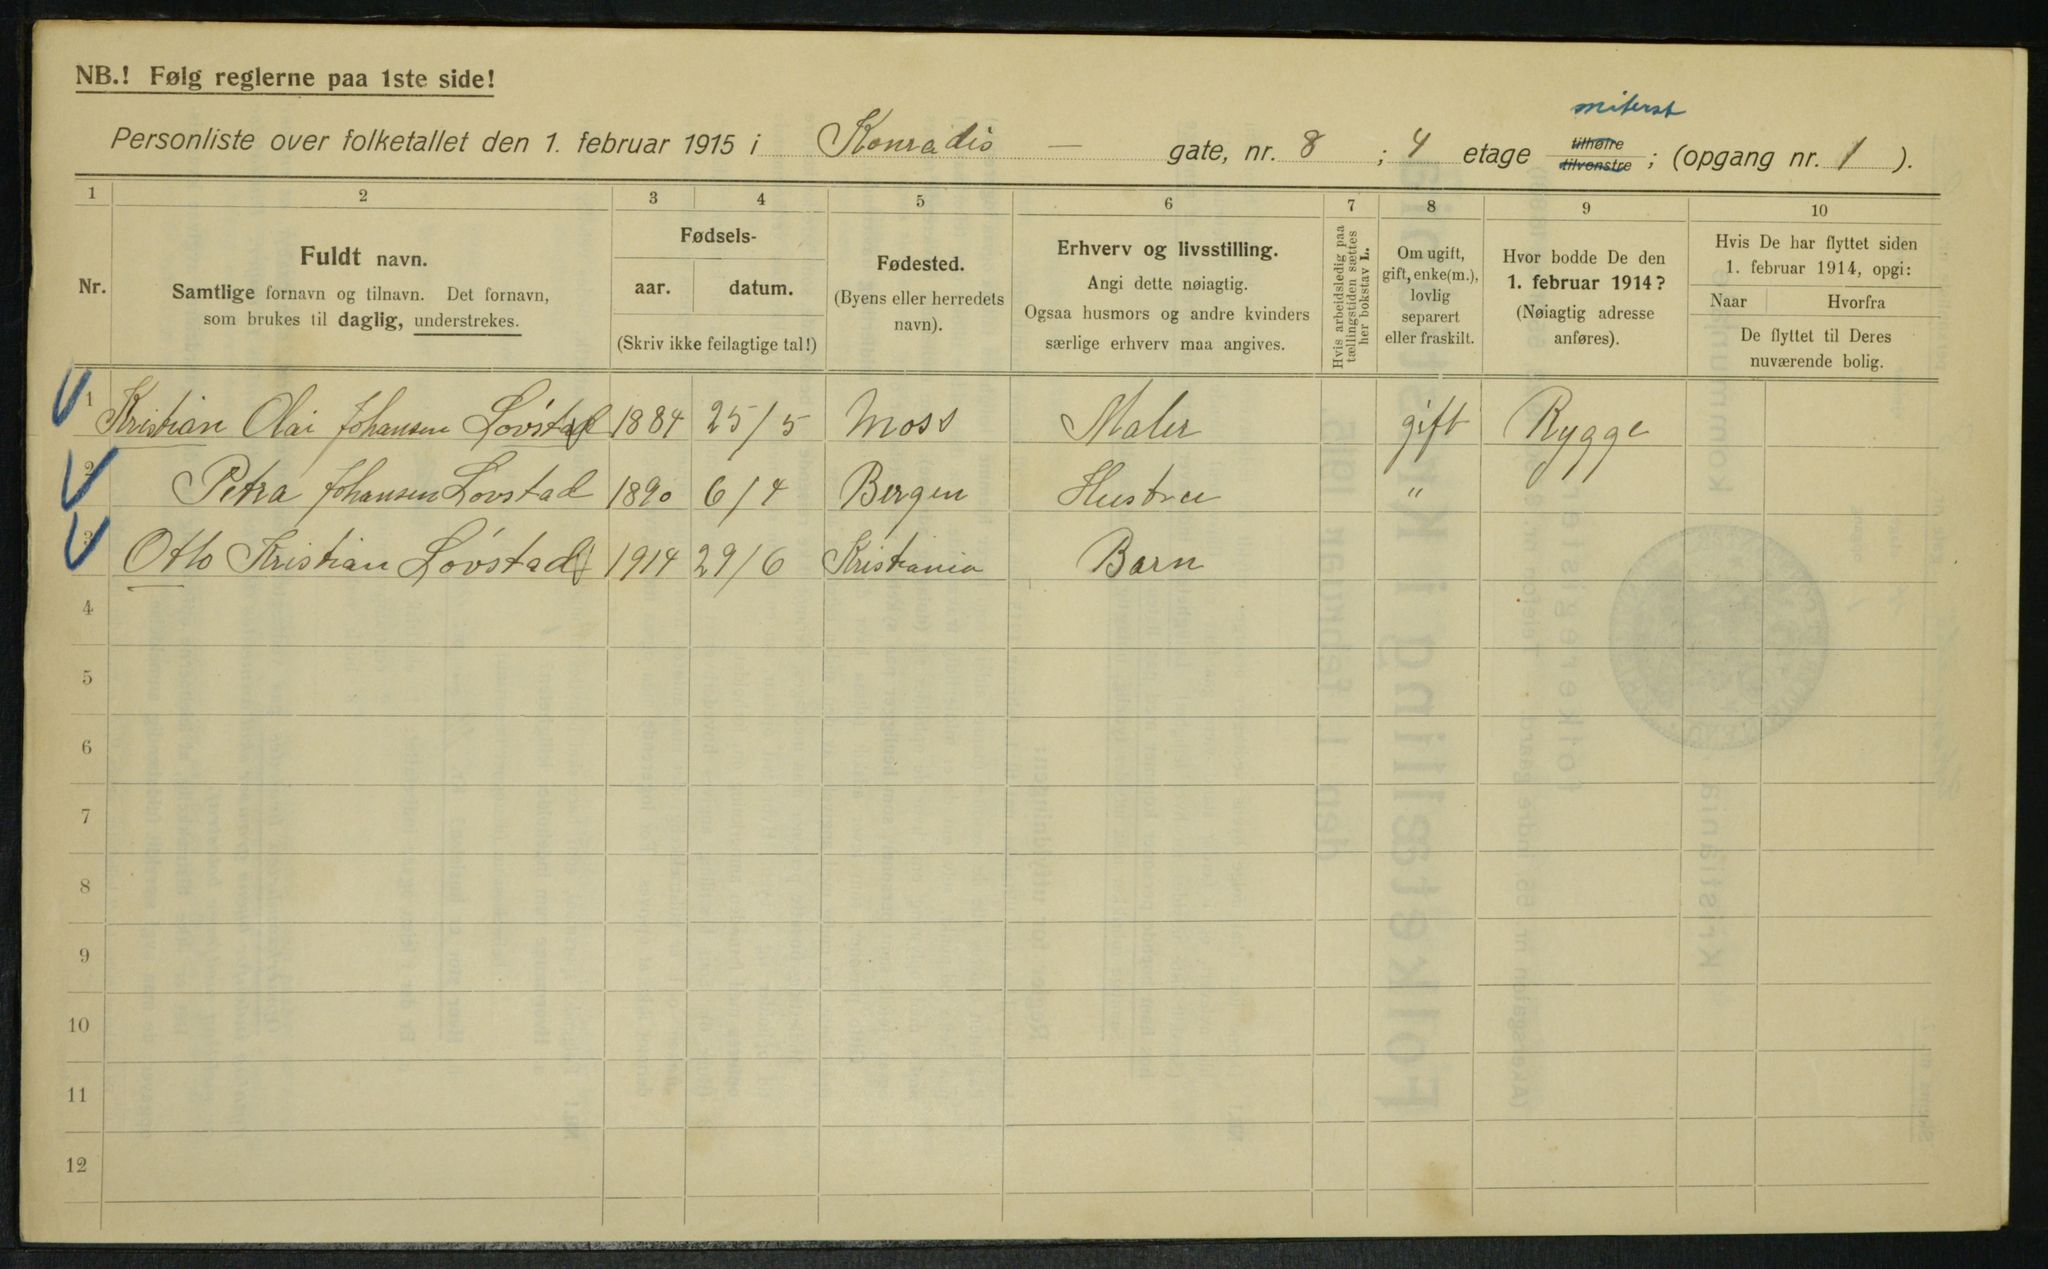 NB.! Følg reglerne paa 1ste side!
miterst
Personliste over folketallet den 1. februar 1915 i Konradis — gate, nr. 8 ; 4 etage tilhøire tilvenstre ; (opgang nr. 1 ).
1 2 3 4 5 6 7 8 9 10
Nr.
Fuldt navn.
Samtlige fornavn og tilnavn. Det fornavn,
som brukes til daglig, understrekes.
Fødsels-
aar. datum.
(Skriv ikke feilagtige tal!)
Fødested.
(Byens eller herredets
navn).
Erhverv og livsstilling.
Angi dette nøiagtig.
Ogsaa husmors og andre kvinders
særlige erhverv maa angives.
Hvis arbeidsledig paa
tællingstiden sættes
her bokstav L.
Om ugift,
gift, enke(m.),
lovlig
separert
eller fraskilt.
Hvor bodde De den
1. februar 1914?
(Nøiagtig adresse
anføres).
Hvis De har flyttet siden
1. februar 1914, opgi:
Naar Hvorfra
De flyttet til Deres
nuværende bolig.
1 Kristian Olai Johansen Lövstad 1884 25/5 Moss Maler gift Rygge
2 Petra Johansen Lovstad 1890 6/4 Bergen Hustru "
3 Otto Kristian Lövstad 1914 29/6 Kristiania Barn
4
5
6
7
8
9
10
11
12